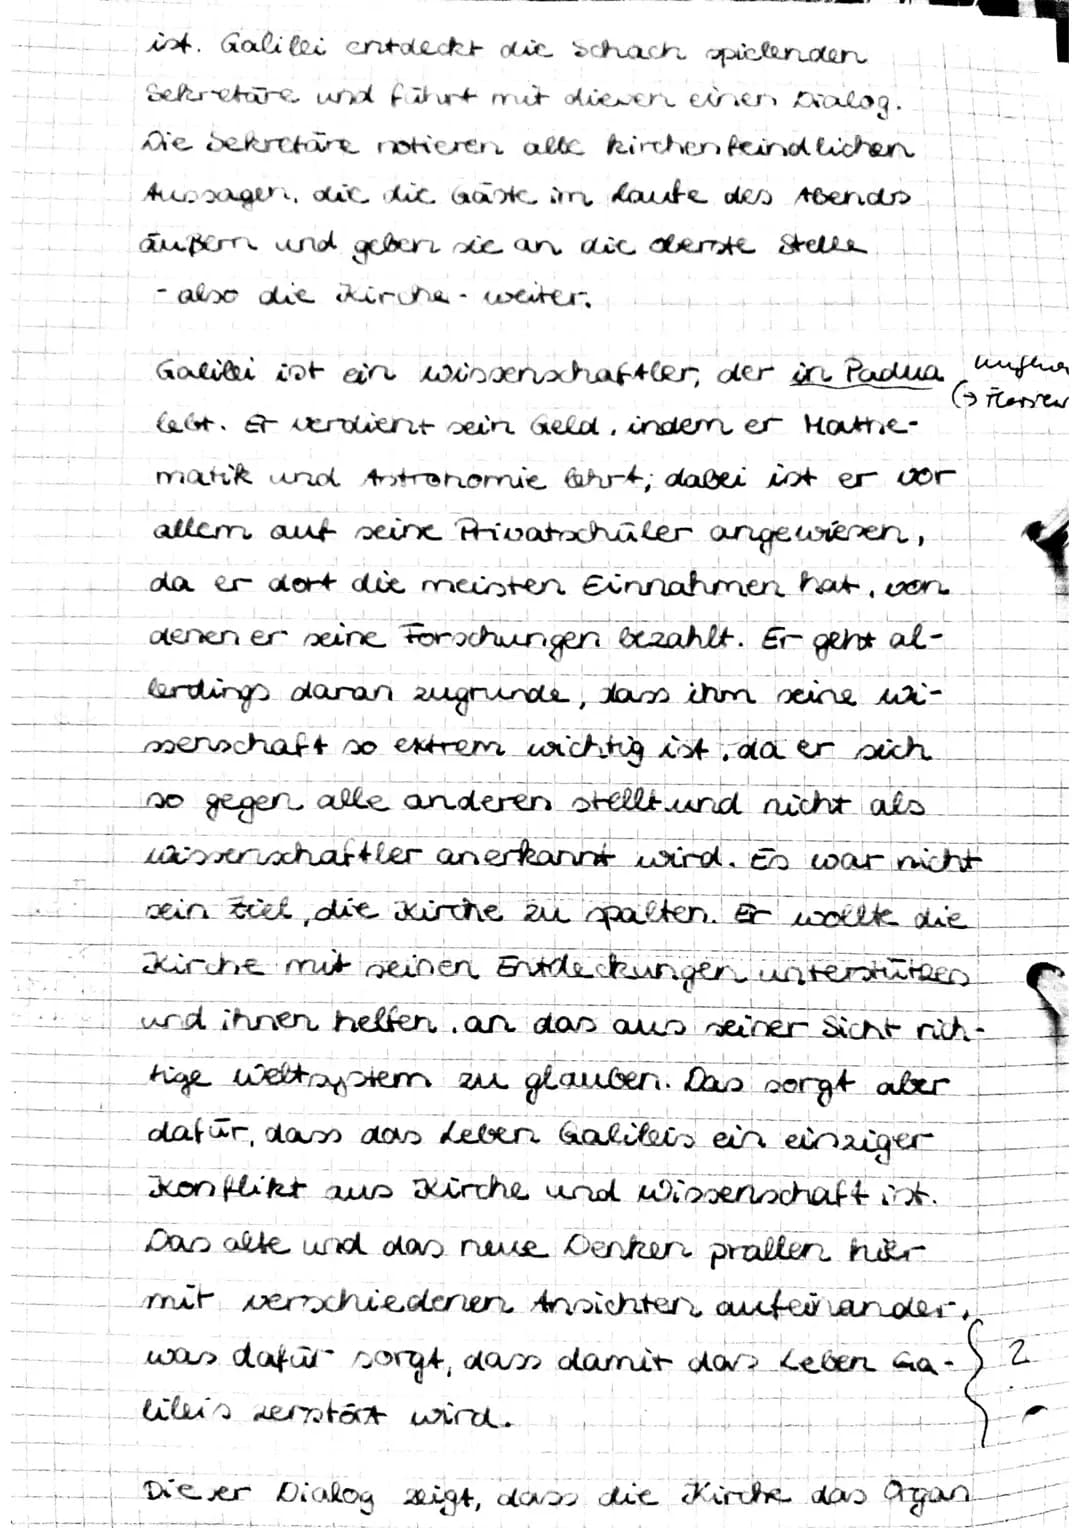 ist. Galilei entdeckt die Schach spielenden
Sekretäre und führt mit diesen einen Dialog.
Die Sekretäre notieren alle kirchenfeindlichen
Aussagen, die die Gäste im Laufe des Abends
äußern und geben sie an die oberste Stelle
- also die Kirche - weiter.
Galilei ist ein Wissenschaftler, der in Padua
(→ Florenz
lebt. Er verdient sein Geld, indem er Mathe-
matik und Astronomie lehrt; dabei ist er vor
allem auf seine Privatschüler angewiesen,
da er dort die meisten Einnahmen hat, von
denen er seine Forschungen bezahlt. Er geht al-
lerdings daran zugrunde, dass ihm seine Wi-
ssenschaft so extrem wichtig ist, da er sich
so gegen alle anderen stellt und nicht als
Wissenschaftler anerkannt wird. Es war nicht
sein Ziel, die Kirche zu spalten. Er wollte die
Kirche mit seinen Entdeckungen unterstützen
und ihnen helfen, an das aus seiner Sicht rich-
tige Weltsystem zu glauben. Das sorgt aber
dafür, dass das Leben Galileis ein einziger
Konflikt aus Kirche und Wissenschaft ist.
Das alte und das neue Denken prallen hier
mit verschiedenen Ansichten aufeinander,
was dafür sorgt, dass damit das Leben Ga- 2
lileis zerstört wird.
Dieser Dialog zeigt, dass die Kirche das Organ